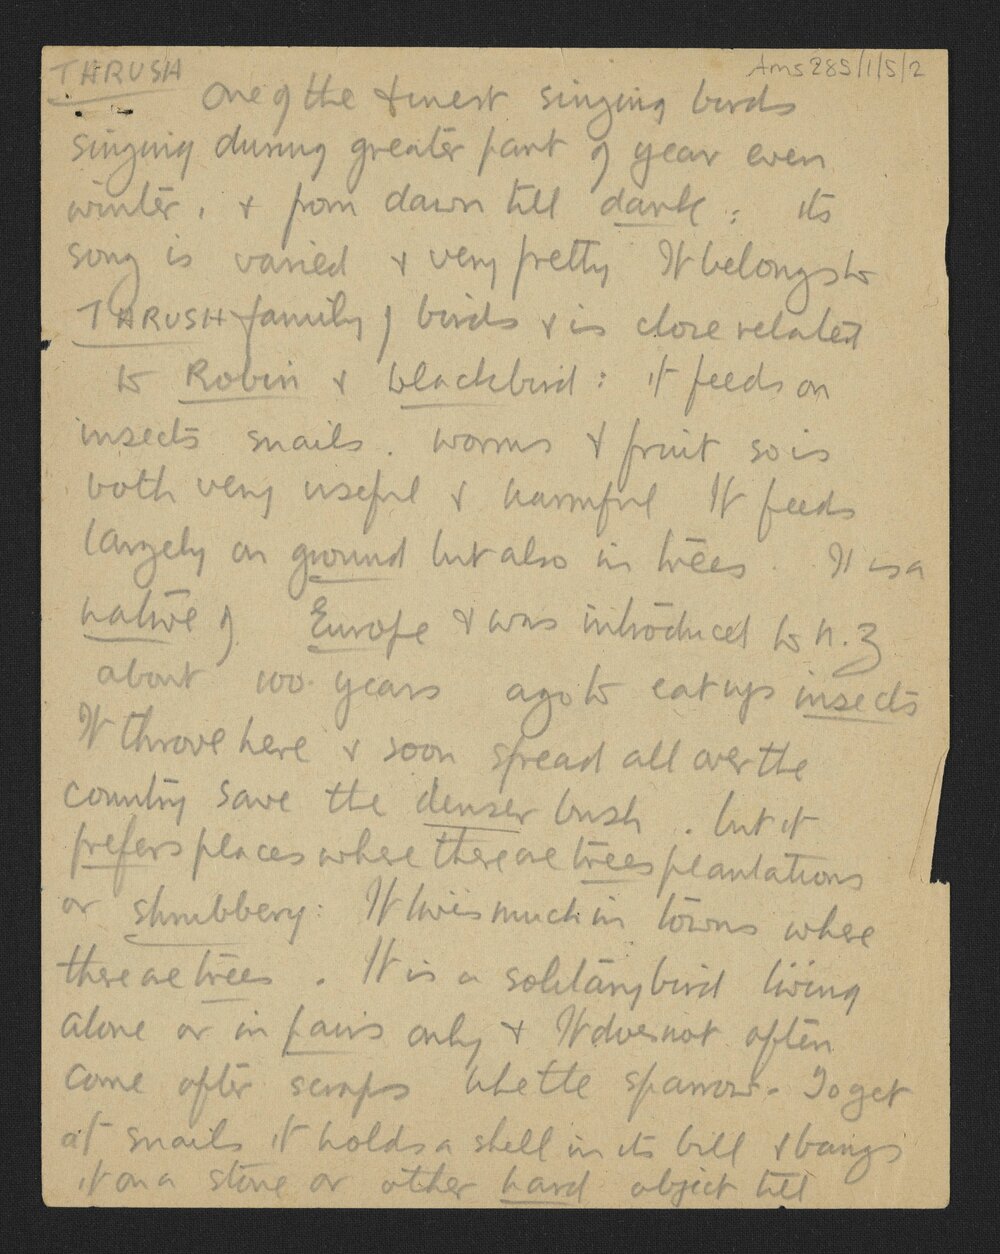 THRUSH
Ams 285/1/5/2
One of the finest singing birds
singing during greater part of year even
winter. & from dawn till dark: its
song is varied & very pretty It belongs to
THRUSH family of birds & is close related
to Robin & blackbird: it feeds on
insects snails. worms & fruit so is
both very useful & harmful It feeds
largely on ground but also in trees. It is a
native of Europe & was introduced to N.Z
about 100 years ago to eat up insects
It throve here & soon spread all over the
country save the denser bush. but it
prefers places where there are trees plantations
or shrubbery: It lives much in towns where
there are trees. It is a solitary bird living
alone or in pairs only & It does not often
come after scraps like the sparrow. To get
at snails it holds a shell in its bill & bangs
it on a stone or other hard object till